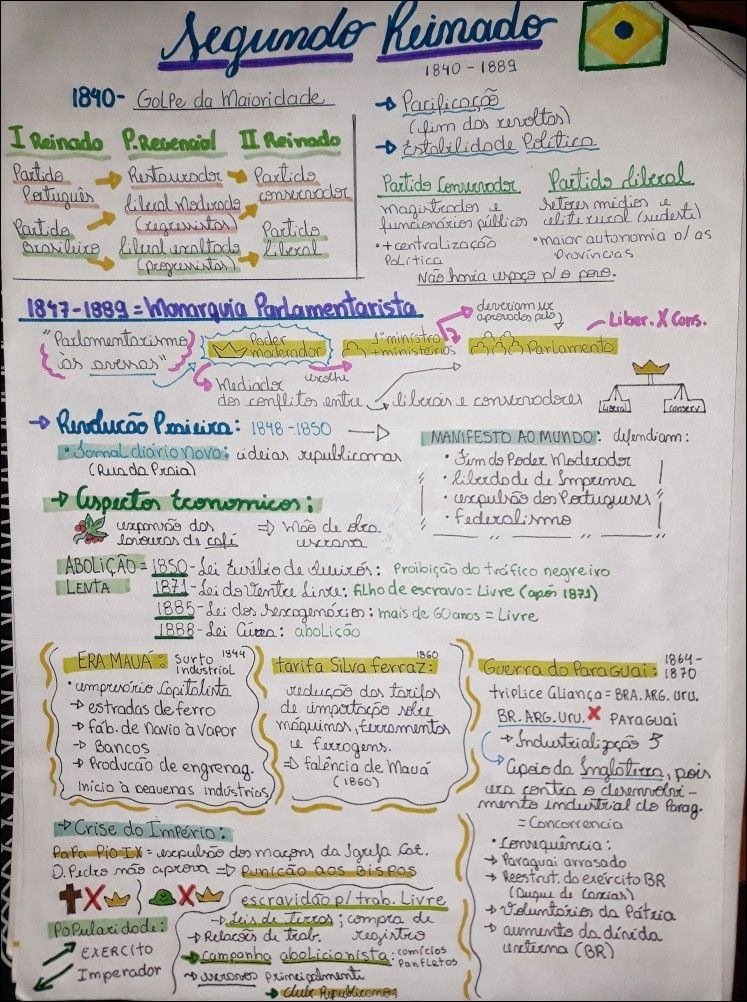 Segundo Reinado
1840-1889
1840- Golpe da Maioridade
I Reinado P. Regencial II Reinado
Partido Português → Restaurador → Partido conservador
Liberal Moderado (regressistas)
Partido Brasileiro → Liberal exaltado (progressistas) → Partido Liberal
→ Pacificação
(fim das revoltas)
→ Estabilidade Política
Partido Conservador
magistrados e
funcionários públicos
• + centralização
Política
Partido Liberal
setores médios e
elite rural (sudeste)
• maior autonomia p/ as
Províncias
Não havia espaço p/ o povo.
1847-1889 = Monarquia Parlamentarista
"Parlamentarismo
às avessas"
Poder
moderador
escolhe
1º ministro
+ ministérios
deveriam ser
aprovados pelo
Parlamento
Liber. X Cons.
Mediador
dos conflitos entre → liberais e conservadores
Liberal
Conserv
→ Revolução Praieira: 1848-1850 →
• Jornal diário novo: ideias republicanas
(Rua da Praia)
MANIFESTO AO MUNDO: defendiam:
• Fim do Poder Moderador
• liberdade de Imprensa
• expulsão dos Portugueses
• Federalismo
→ Aspectos Econômicos:
expansão das
lavouras de café
⇒ Mão de obra
escrava
ABOLIÇÃO = 1850- Lei Eusébio de Queirós: Proibição do tráfico negreiro
LENTA 1871- Lei do Ventre Livre: filho de escravo = Livre (após 1871)
1885- Lei dos Sexagenários: mais de 60 anos = Livre
1888- Lei Áurea: abolição
ERA MAUÁ: Surto 1844
industrial
• empresário Capitalista
→ estradas de ferro
→ fáb. de Navio à vapor
→ Bancos
→ Produção de engrenag.
Início à pequenas indústrias
1860
tarifa Silva ferraz:
redução das tarifas
de importação sobre
máquinas, ferramentas
e ferragens.
⇒ falência de Mauá
(1860)
Guerra do Paraguai: 1864-
1870
triplice Aliança = BRA. ARG. URU.
BR. ARG. URU. X PARAGUAI
→ Industrialização
Apoio da Inglaterra, pois
era contra o desenvolvi-
mento industrial do Parag.
= Concorrencia
• Consequência:
→ Paraguai arrasado
→ Reestrut. do exército BR
(Duque de Caxias)
→ Voluntários da Pátria
→ aumento da dívida
externa (BR)
→ Crise do Império:
Papa Pio IX = expulsão dos maçons da Igreja Cat.
D. Pedro não aprova ⇒ Punição aos BISPOS
X
X
escravidão p/ trab. Livre
→ Leis de Terras; compra de
registro
→ Relações de trab.
→ campanha abolicionista: comícios
Panfletos
→ escravos principalmente
→ clube Republicanos
Popularidade:
EXERCITO
Imperador